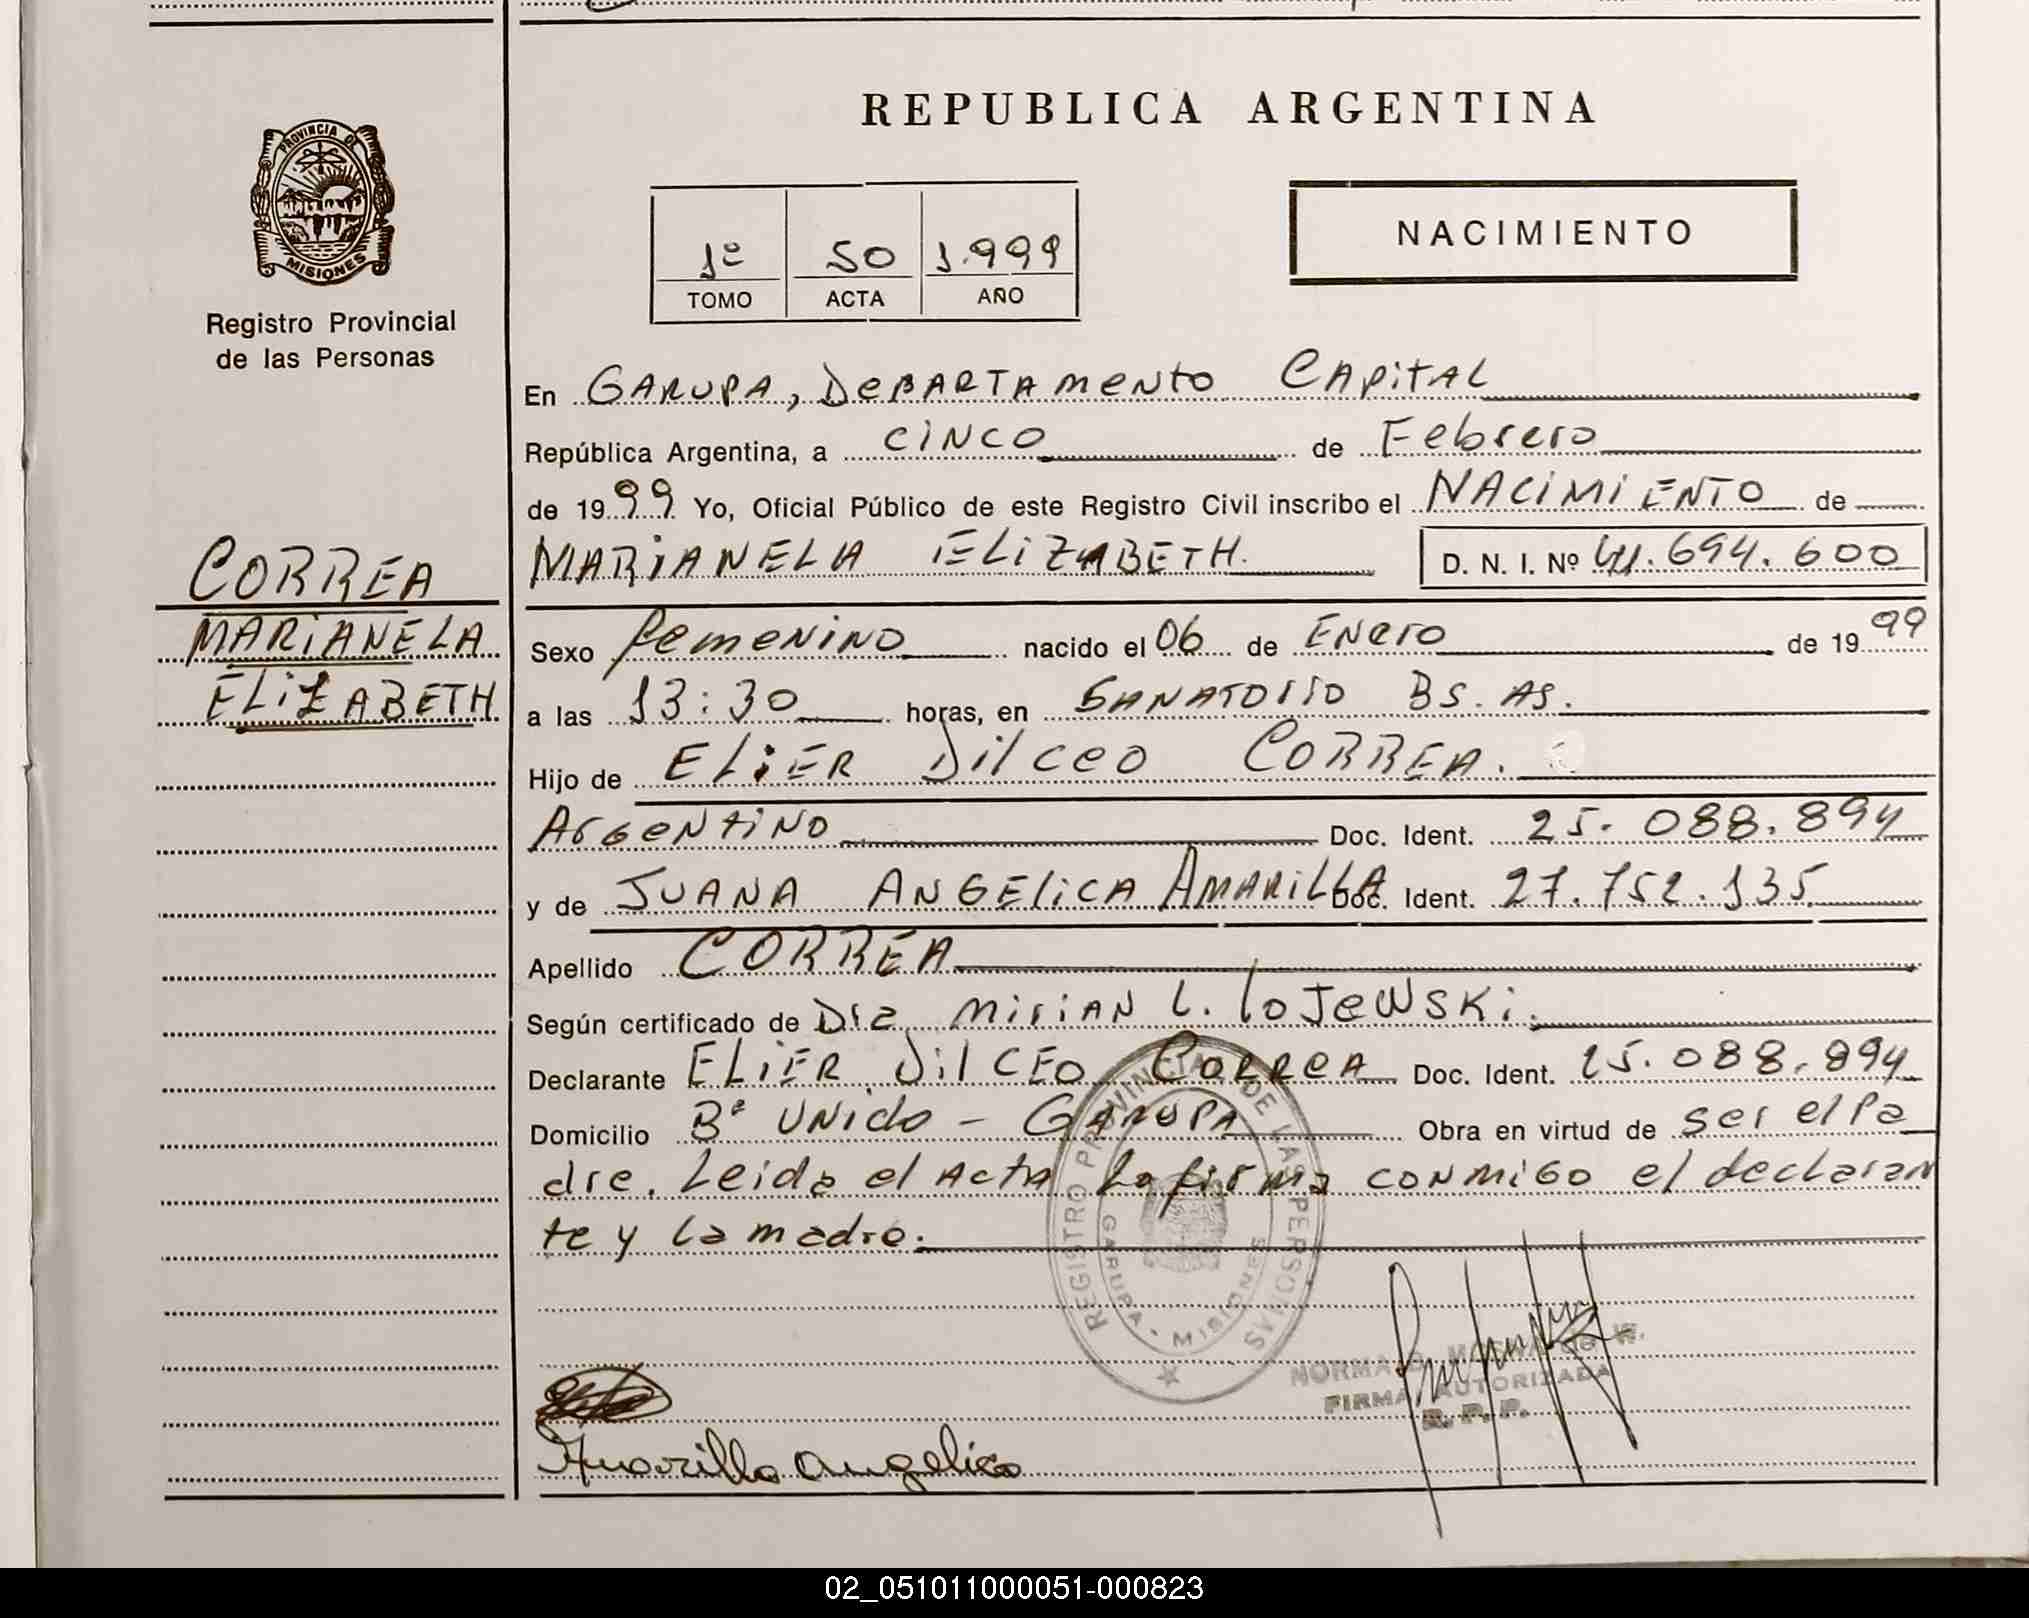 PROVINCIA DE
MISIONES
Registro Provincial
de las Personas
CORREA
MARIANELA
ELIZABETH
REPUBLICA ARGENTINA
1º 50 1.999
TOMO ACTA AÑO
NACIMIENTO
En GARUPA, DEPARTAMENTO CAPITAL
República Argentina, a CINCO de Febrero
de 1999 Yo, Oficial Público de este Registro Civil inscribo el NACIMIENTO de
MARIANELA ELIZABETH. D. N. I. Nº 41.694.600
Sexo femenino nacido el 06 de Enero de 1999
a las 13:30 horas, en SANATORIO BS. AS.
Hijo de ELIER DILCEO CORREA.
Argentino Doc. Ident. 25.088.894
y de JUANA ANGELICA AMARILLA Doc. Ident. 27.752.135
Apellido CORREA
Según certificado de Dra Mirian L. Lojewski.
Declarante ELIER DILCEO CORREA Doc. Ident. 25.088.894
Domicilio Bº UNIDO - GARUPA Obra en virtud de ser el Pa
dre. Leida el Acta La firma conmigo el declaran
te y la madre.
REGISTRO PROVINCIAL DE LAS PERSONAS
GARUPA - MISIONES
NORMA
FIRMA AUTORIZADA
R. P. P.
Amarilla Angelica
02_051011000051-000823